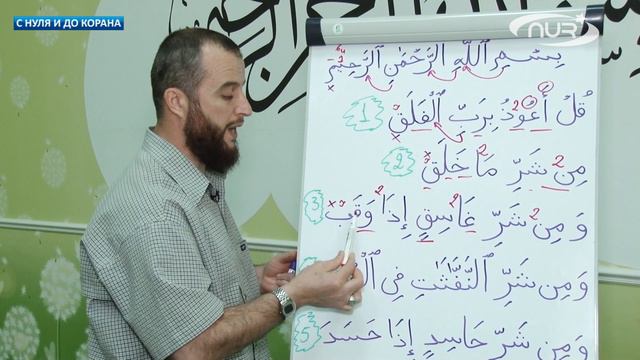 С НУЛЯ И ДО КОРАНА
NUR
بِسْمِ ٱللَّهِ ٱلرَّحْمَٰنِ ٱلرَّحِيمِ
قُلْ أَعُوذُ بِرَبِّ ٱلْفَلَقِ 1
مِن شَرِّ مَا خَلَقَ 2
وَمِن شَرِّ غَاسِقٍ إِذَا وَقَبَ 3
وَمِن شَرِّ ٱلنَّفَّٰثَٰتِ فِي
وَمِن شَرِّ حَاسِدٍ إِذَا حَسَدَ 5